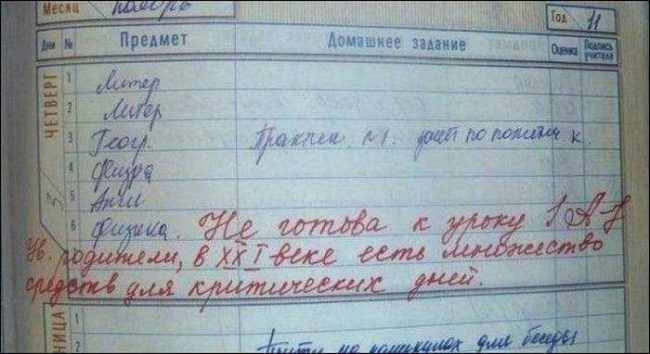 Месяц ноябрь Год 11
Дни № Предмет Домашнее задание Оценка Подпись учителя
ЧЕТВЕРГ 3
1 Литер
2 Литер
3 Геогр. Практич. №1. по к.
4 Физра
5 Англ
6 Физика. Не готова к уроку
Ув. родители, в XXI веке есть множество
средств для критических дней.
НИЦА
1
2 на каникулах для беседы